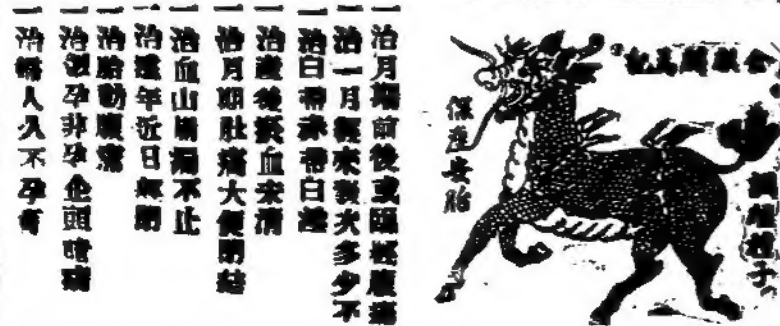 為記
調經種子
保產安胎
一治月期前後或臨經腹痛
一治一月經來數次多少不
一治白帶赤帶白濁
一治產後瘀血未清
一治月期肚痛大便閉結
一治血山崩漏不止
一治遠年近日經閉
一治胎動腹痛
一治孕非孕企頭暗痛
一治婦人久不孕育